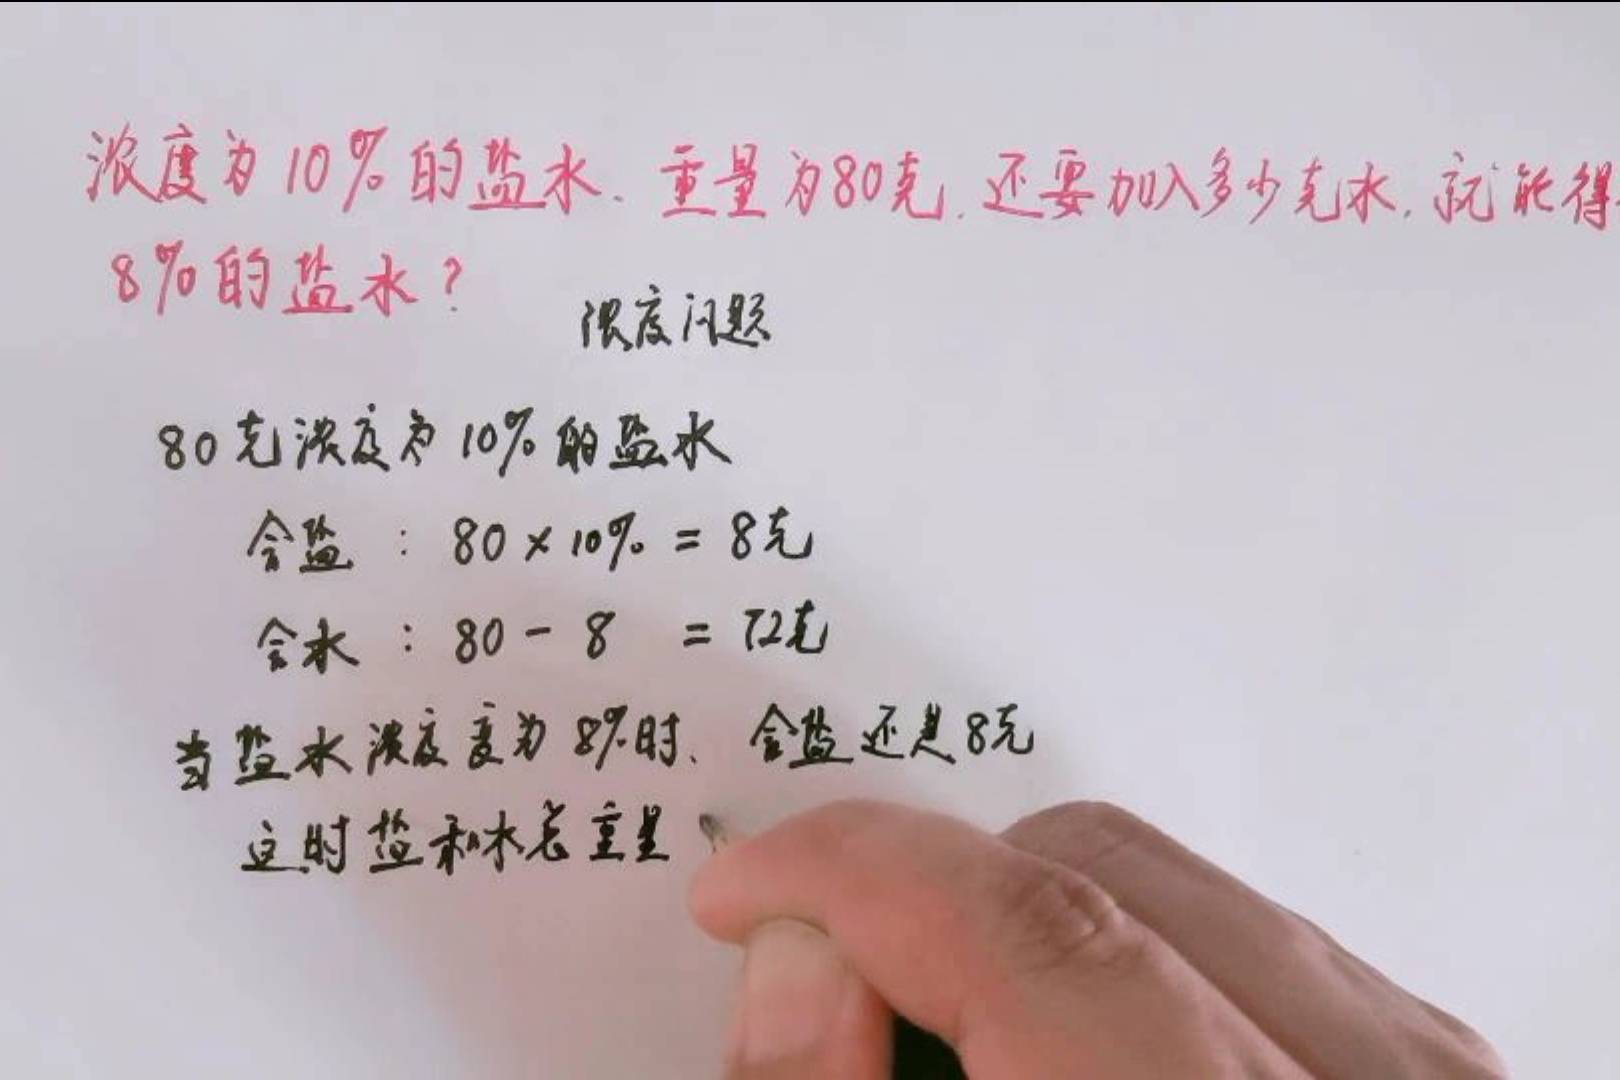 浓度为10%的盐水.重量为80克.还要加入多少克水.就能得
8%的盐水?
浓度问题
80克浓度为10%的盐水
含盐:80×10%=8克
含水:80-8=72克
当盐水浓度度为8%时.含盐还是8克
这时盐和水总重量